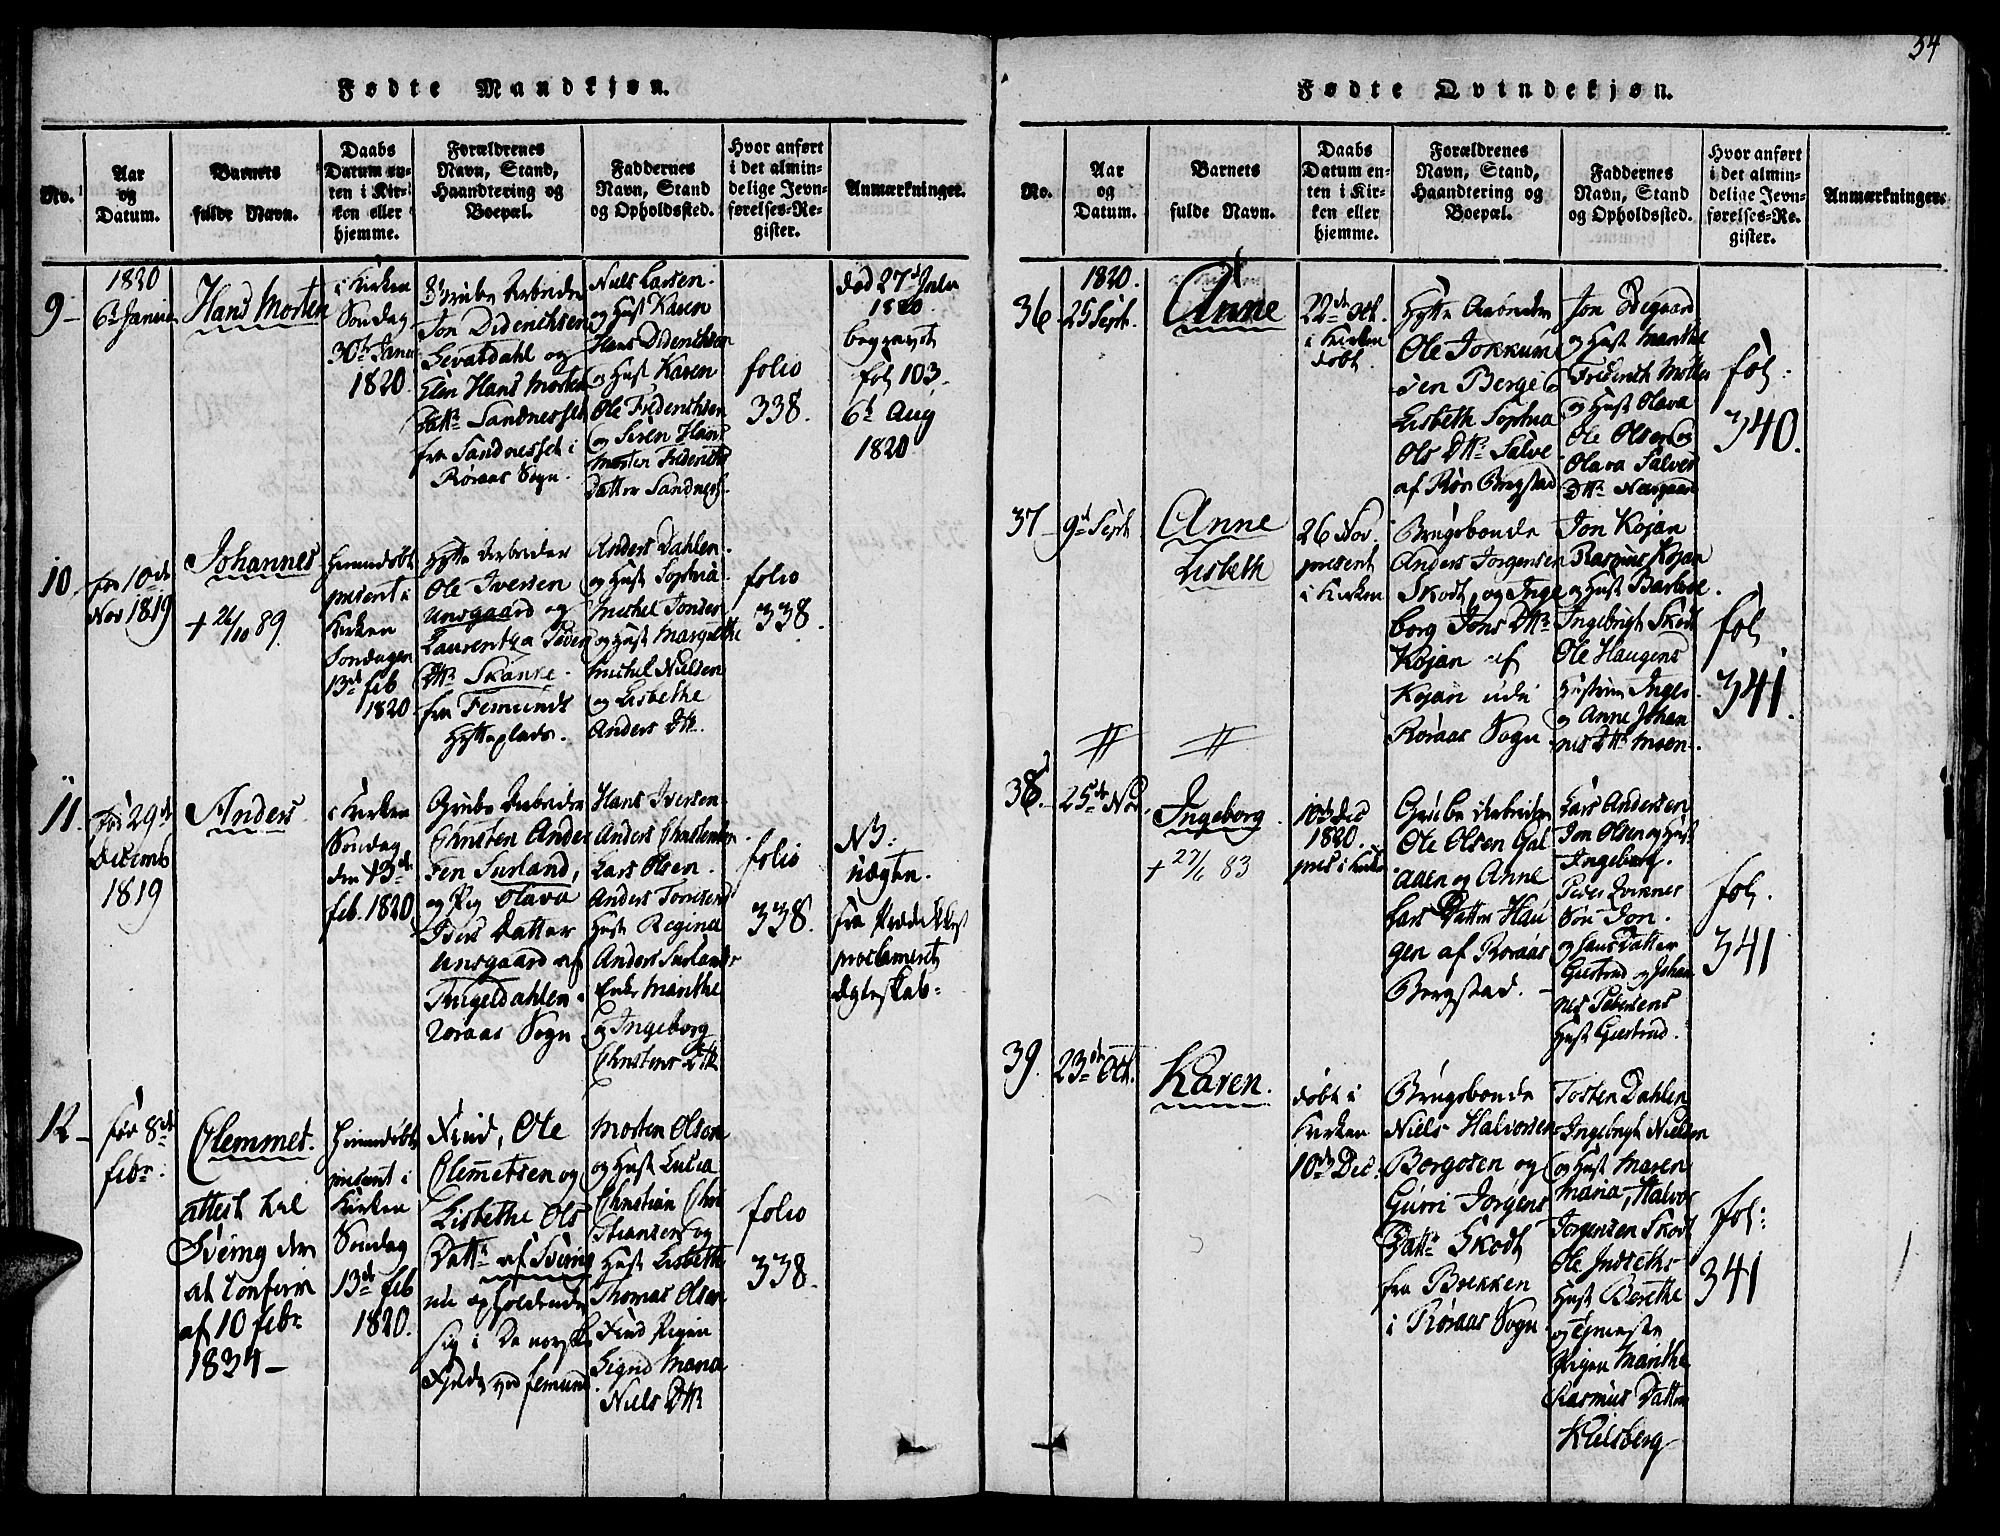 54
Fødte Mandkjøn.
No.
Aar
og
Datum.
Barnets
fulde Navn.
Daabs
Datum en-
ten i Kir-
ken eller
hjemme.
Forældrenes
Navn, Stand,
Haandtering og
Boepæl.
Faddernes
Navn, Stand
og Opholdssted.
Hvor anført
i det almin-
delige Jevn-
førelses-Re-
gister.
Anmærkninger.
9
1820
6t Janua
Hans Morten
i Kirken
Søndag
30t Janu
1820
Grube Arbeider
Jon Diderichsen
Sevatdahl og
Elen Hans Morten
Dattr Sandnesset
fra Sandnesset i
Røraas Sogn.
Niels Larsen
og Hust Karen
Hans Diderichsen
og Hust Karen
Ole Friderichsen
og Siren Hans
Morten Friderichs
Datter Sandness.
folio
338.
død 27d Julii
1820
begravet
fol 103.
6t Aug
1820
10
fød 10de
Nov 1819
Johannes
+ 26/10 89.
Hiemdøbt
præsent i
Kirken
Søndagen
13de feb
1820
Hytte Arbeider
Ole Iversen
Unsgaard og
Laurentha Peder
Dttr Skanke.
fra Femunds
Hytteplads.
Anders Dahlen
og Hust Sophia
Michel Jonsen
og Hust Margrethe
Michel Nielsen
og Lisbethe
Anders Dtt.
folio
338.
11.
fød 29de
Decemb
1819
Anders
i Kirken
Søndag
den 13de
feb. 1820
Grube Arbeider
Christen Ander
sen Surland,
og Pig Olava
Ivers Datter
Unsgaard af
Tufseldahlen
Røraas Sogn
Hans Iversen
Anders Christensen
Lars Olsen.
Anders
Hust Regina
Anders Surlands
Enke Marithe
og Ingeborg
Christens Dtt
folio
338.
NB:
uægte.
fra
proclameret
Ægteskab
12
fød 8de
febr:
Clemmet.
attest hal
Sveing den
at Confirm
af 10 febr
1834
Hiemdøbt
præsent i
Kirken
Søndag
13de feb
1820.
Find, Ole
Clemetsen og
Lisbethe Ols
Dattr af Sverrig
nu opholdende
sig i De norske
Fjelde ved Femund
Morten Olsen
og Hust Lucia
Christian Chri
stiansen og
Hust Lisbethe
Thomas Olsen
Find Pigen
Sigrid Maria
Niels Dttr
folio
338.
Fødte Qvindekjøn.
No.
Aar
og
Datum.
Barnets
fulde Navn.
Daabs
Datum en-
ten i Kir-
ken eller
hjemme.
Forældrenes
Navn, Stand,
Haandtering og
Boepæl.
Faddernes
Navn, Stand
og Opholdssted.
Hvor anført
i det almin-
delige Jevn-
førelses-Re-
gister.
Anmærkninger.
36
1820.
25 Sept.
Anne
22de Oct.
i Kirken
døbt.
Hytte Arbeider
Ole Jokkum
sen Berg og
Lisbeth Sophia
Ols Dttr Salve
af Rør Bergstad
Jon Ødegaard
og Hust Marithe
Friderich Møller
og Hust Olava
Ole Olsen og
Olava Salves
Dttr Næsgaard
fol:
340.
37
9d Sept
Anne
Lisbeth
26 Nov.
præsent
i Kirken
Brugsbonde
Anders Jørgensen
Skodt, og Inge
borg Jons Dttr
Kojan af
Kojan udi
Røraas Sogn
Jon Kojan
Rasmus Kojan
og Hust Barbroe
Ingebrigt Skodt
Ole Haugens
Hustrue Inger
og Anne Johan
nes Dttr Moen
fol
341.
38
25de Nov
Ingeborg
+ 27/6 83
10de Dec
1820.
præs i Kirken
Grube Arbeider
Ole Olsen Gal
aaen og Anne
Lars Datter Hau
gen af Røraas
Bergstad.
Lars Andersen
Jon Olsen og Hust
Ingeborg.
Peder
Søn Jon.
og hans Datter
Giertrud og Johan
nes Pedersens
Hust Giertrud.
fol.
341
39.
23de Oct.
Karen.
døbt i
Kirken
10de Dec.
Brugsbonde
Niels Halvorsen
Borgosen og
Gurri Jørgens
Dattr Skodt
fra Brekken
i Røraas Sogn
Tosten Dahlen
Ingebrigt Nielsen
og Hust Maren
Maria, Halvor
Jørgensen Skodt
Ole Indseths
Hust Berethe
og
Pigen Marithe
Rasmus Datter
Kulsberg
fol:
341